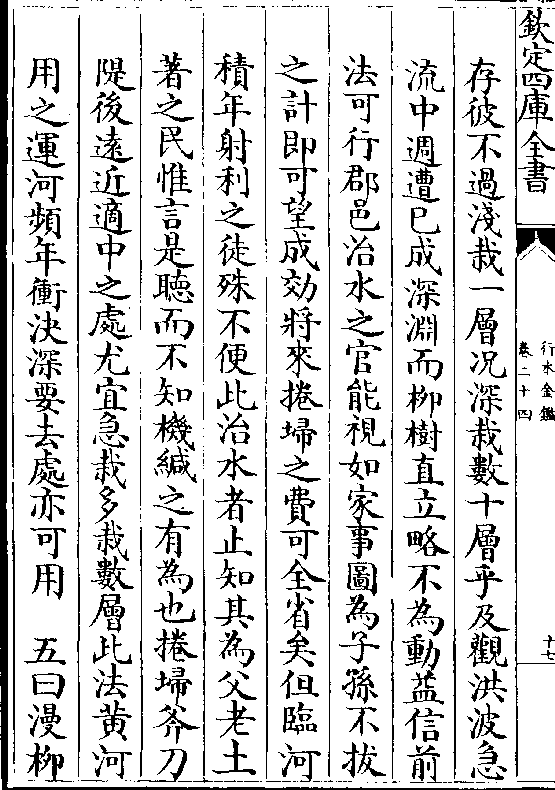 欽定四庫全書
行水金鑑
卷二十四
十七
存彼不過淺栽一層况深栽數十層乎及觀洪波急
流中週遭已成深淵而柳樹直立略不為動益信前
法可行郡邑治水之官能視如家事圖為子孫不拔
之計即可望成効將來捲埽之費可全省矣但臨河
積年射利之徒殊不便此治水者止知其為父老土
著之民惟言是聽而不知機緘之有為也捲埽斧刀
隄後遠近適中之處尤宜急栽多栽數層此法黄河
用之運河頻年衝決深要去處亦可用　五曰漫柳